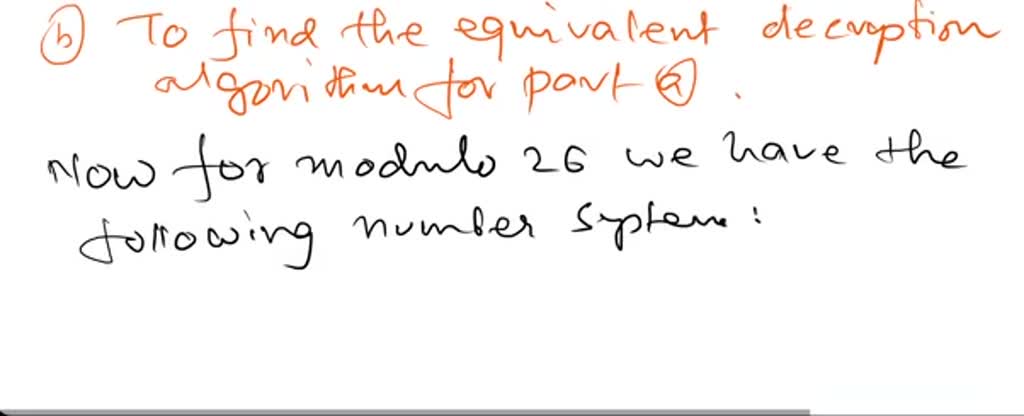 (b) To find the equivalent decryption
algorithm for part (a).
Now for modulo 26 we have the
following number system: